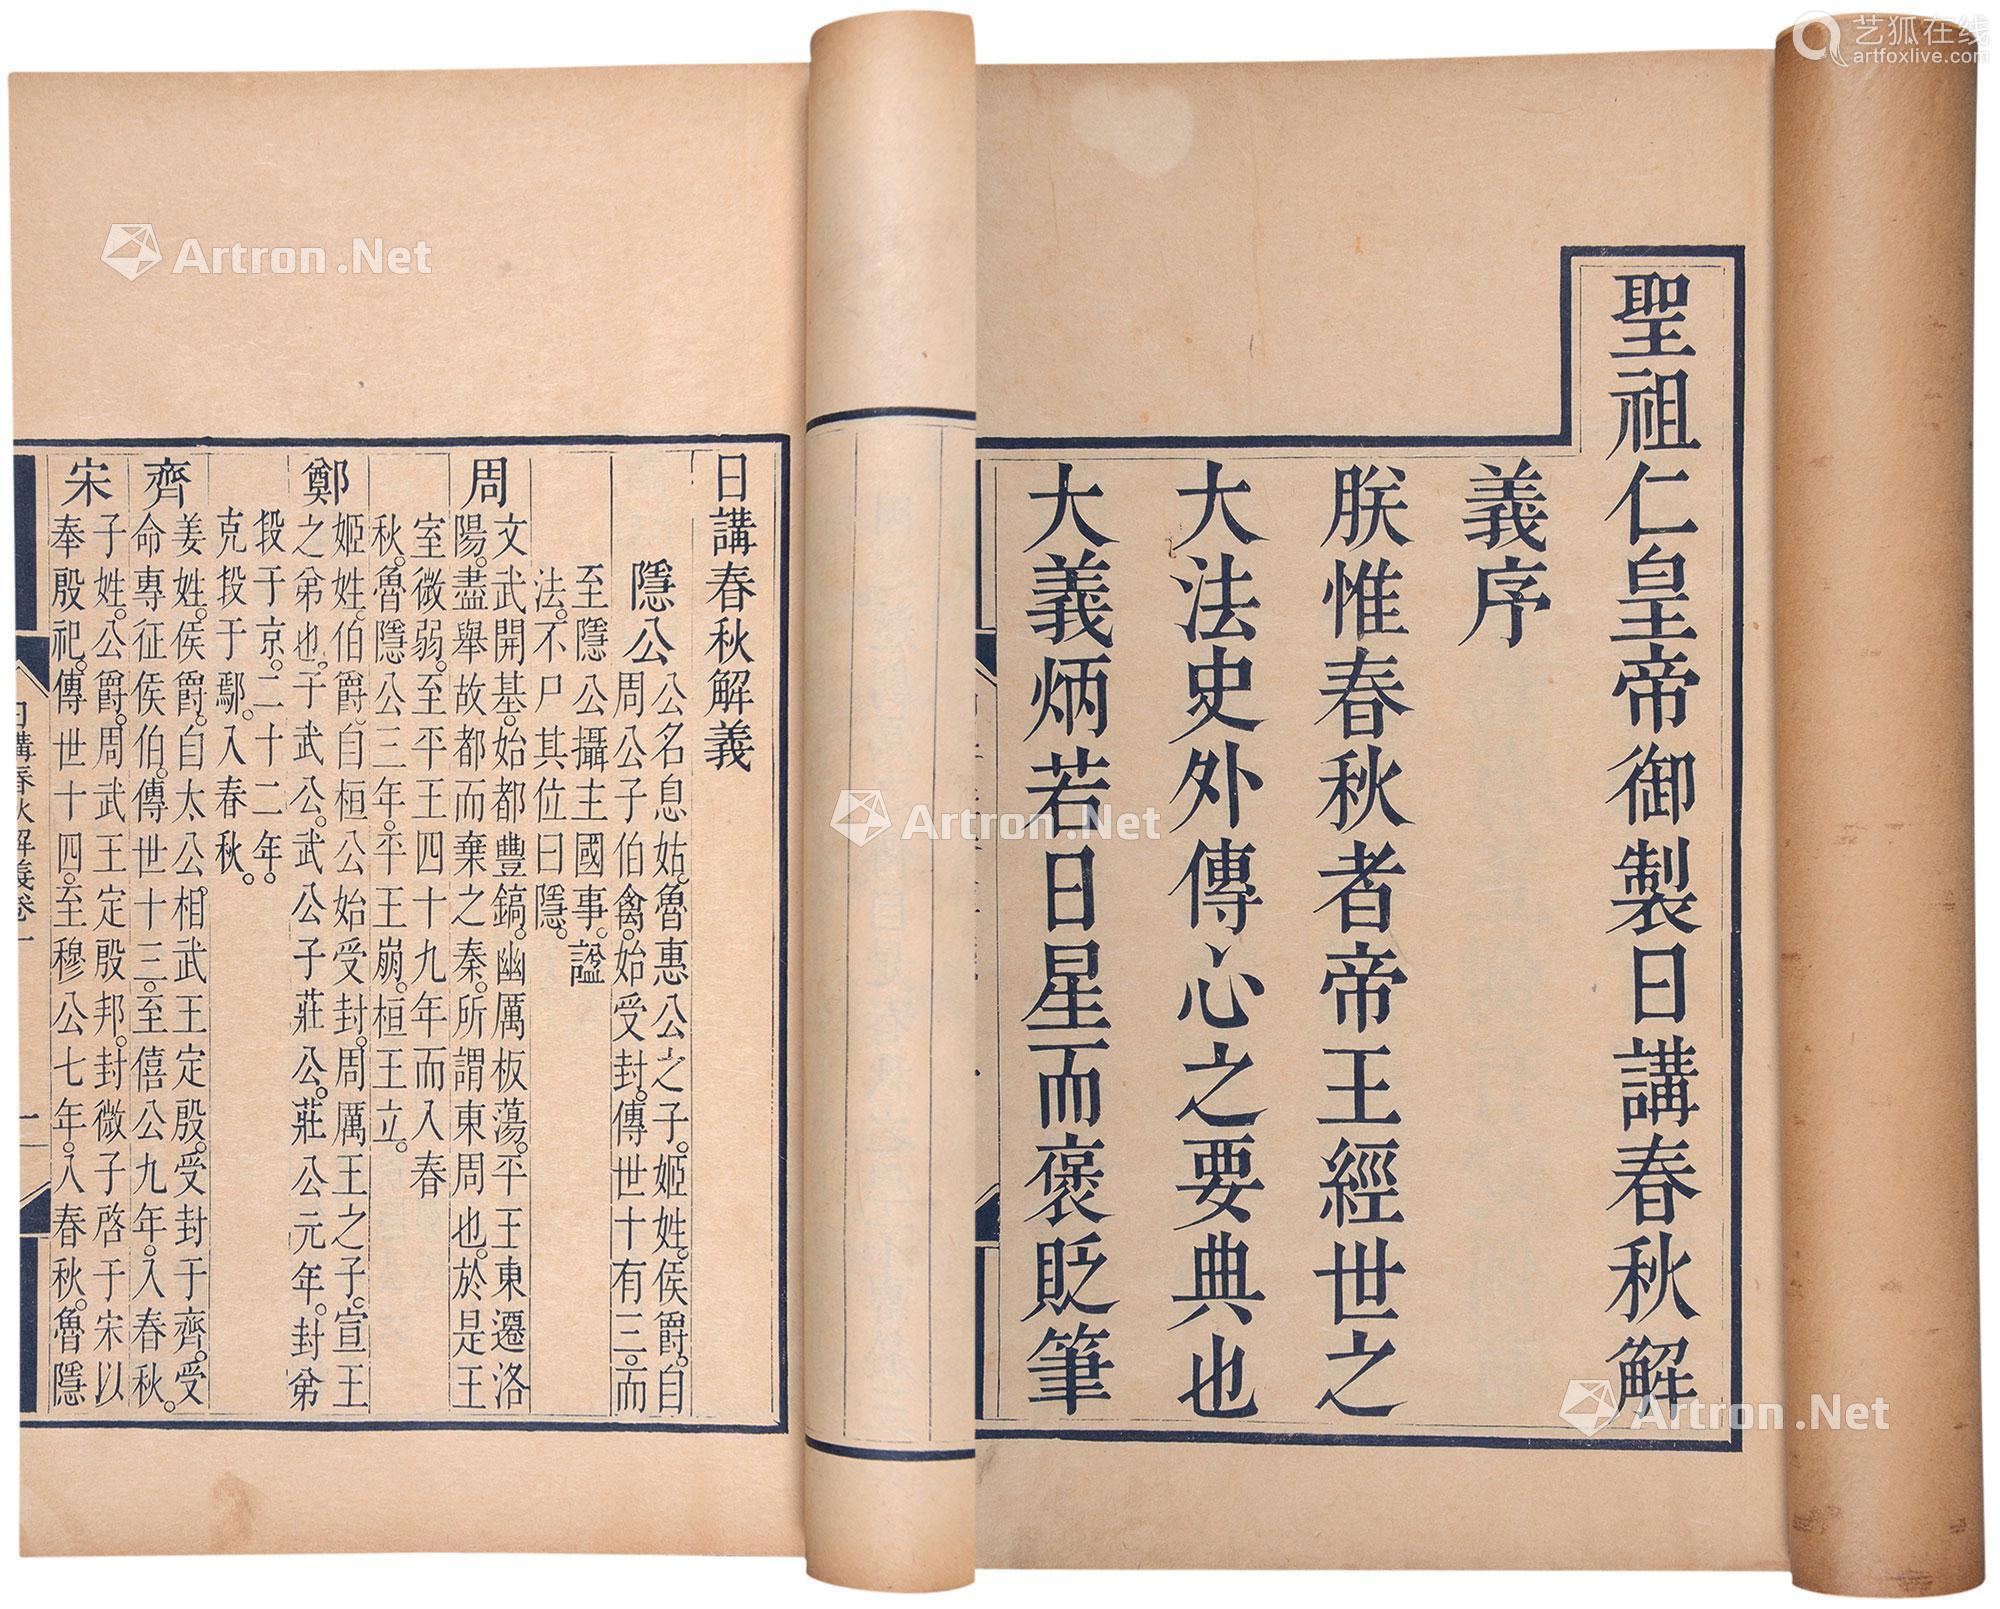 聖祖仁皇帝御製日講春秋解
義序
朕惟春秋者帝王經世之
大法史外傳心之要典也
大義炳若日星而褒貶筆
日講春秋解義
隱公
公名息姑。魯惠公之子。姬姓。侯爵。自
周公子伯禽。始受封。傳世十有三。而
至隱公攝主國事。諡
法。不尸其位曰隱。
周
文武開基。始都豐鎬。幽厲板蕩。平王東遷洛
陽。盡舉故都而棄之秦。所謂東周也。於是王
室微弱。至平王四十九年而入春
秋。魯隱公三年。平王崩。桓王立。
鄭
姬姓。伯爵。自桓公始受封。周厲王之子。宣王
之弟也。子武公。武公子莊公。莊公元年。封弟
段于京。二十二年。
克段于鄢。入春秋。
齊
姜姓。侯爵。自太公。相武王定殷。受封于齊。受
命專征侯伯。傳世十三。至僖公九年。入春秋。
宋
子姓。公爵。周武王定殷邦。封微子啓于宋以
奉殷祀。傳世十四。至穆公七年。入春秋。魯隱
日講春秋解義卷一
艺狐在线
artfoxlive.com
Artron.Net
Artron.Net
Artron.Net